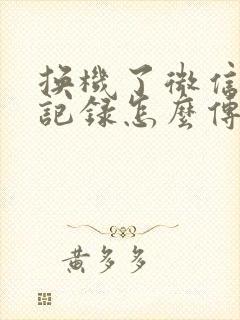 換機了微信
記録怎麽傳
黃多多